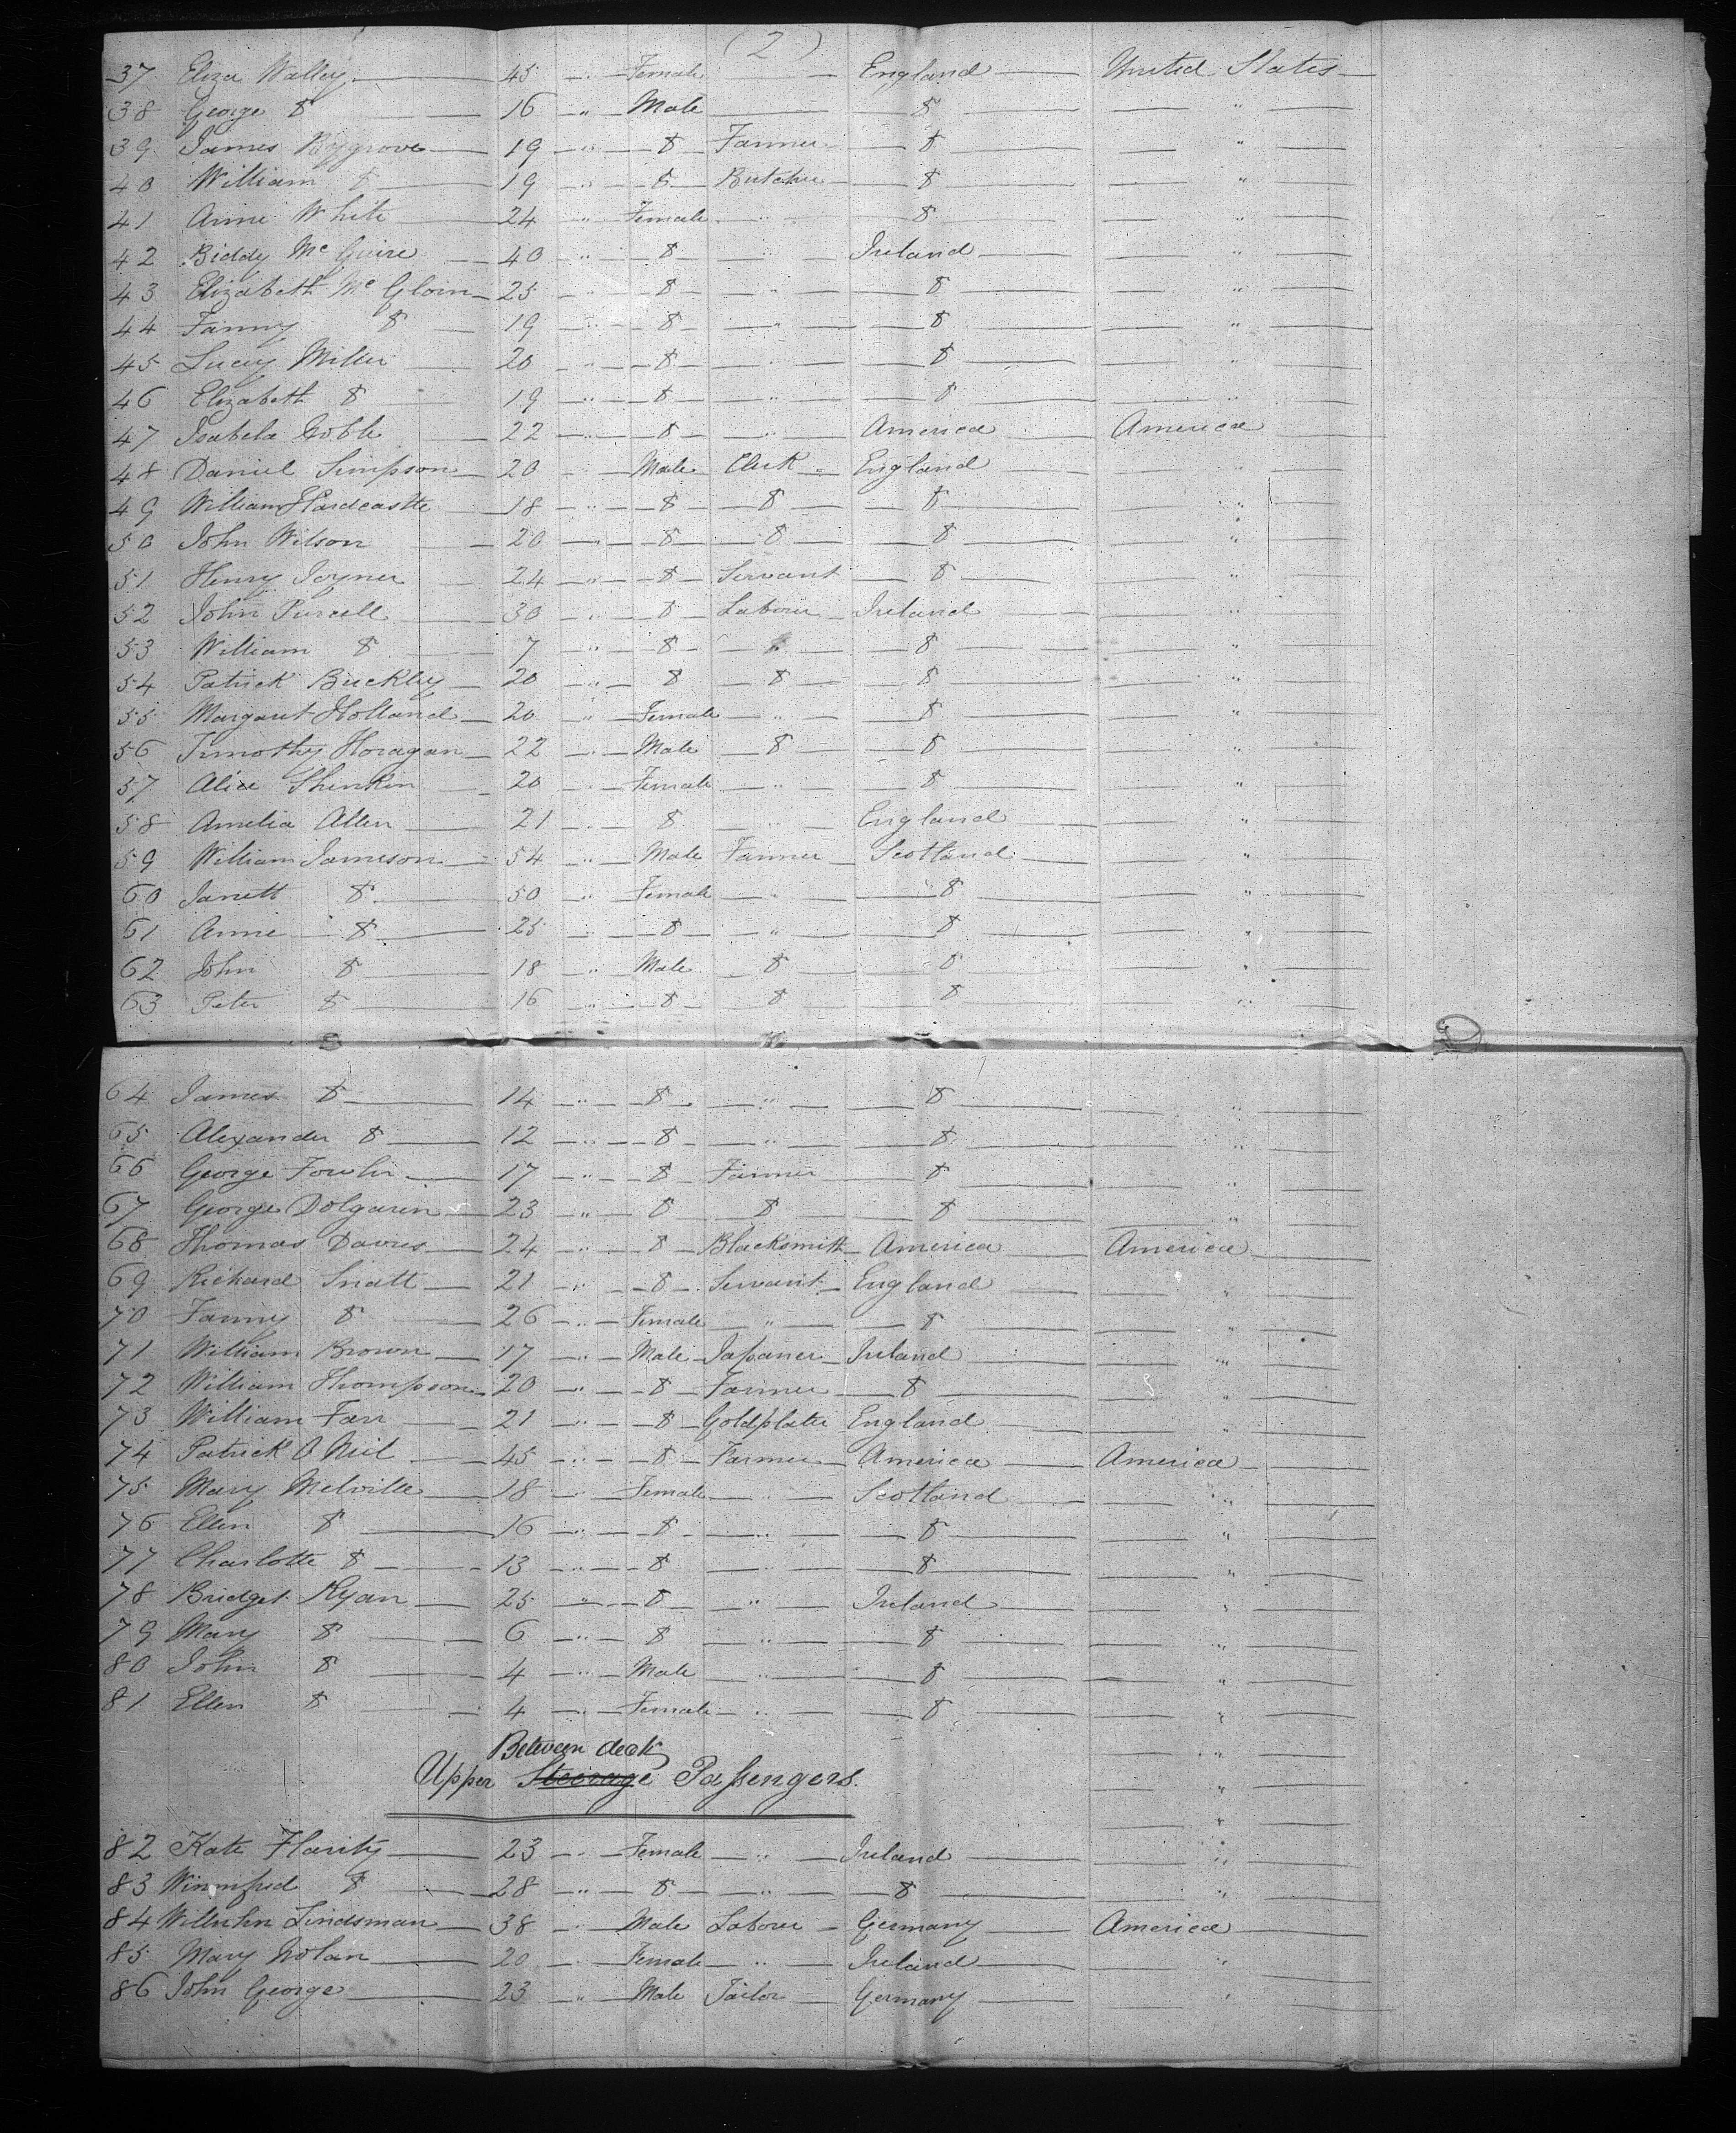 (2)
37 Eliza Walley 45 " Female England United States
38 George Do 16 " Male Do "
39 James Boxgrove 19 " Do Farmer Do "
40 William Do 19 " Do Butcher Do "
41 Anne White 24 " Female " Do "
42 Biddy McGuire 40 " Do " Ireland "
43 Elizabeth McGloin 25 " Do " Do "
44 Fanny Do 19 " Do " Do "
45 Lucy Miller 20 " Do " Do "
46 Elizabeth Do 19 " Do " Do "
47 Isabela Noble 22 " Do " America America
48 Daniel Simpson 20 " Male Clerk England "
49 William Hardcastle 18 " Do Do Do "
50 John Wilson 20 " Do Do Do "
51 Henry Joyner 24 " Do Servant Do "
52 John Purcell 30 " Do Laborer Ireland "
53 William Do 7 " Do Do "
54 Patrick Buckley 20 " Do Do Do "
55 Margaret Holland 20 " Female " Do "
56 Timothy Horagan 22 " Male Do Do "
57 Alice 20 " Female " Do "
58 Amelia Allen 21 " Do " England "
59 William Jameson 54 " Male Farmer Scotland "
60 Janett Do 50 " Female " Do "
61 Anne Do 25 " Do " Do "
62 John Do 18 " Male Do Do "
63 Peter Do 16 " Do Do Do "
64 James Do 14 " Do " Do "
65 Alexander Do 12 " Do " Do "
66 George Fowler 17 " Do Farmer Do "
67 George Dolgarin 23 " Do Do Do "
68 Thomas Davies 24 " Do Blacksmith America America
69 Richard Snatt 21 " Do Servant England "
70 Fanny Do 26 " Female " Do "
71 William Brown 17 " Male Japaner Ireland "
72 William Thompson 20 " Do Farmer Do "
73 William Farr 21 " Do Goldplater England "
74 Patrick O Neil 45 " Do Farmer America America
75 Mary Melville 18 " Female " Scotland "
76 Ellen Do 16 " Do " Do "
77 Charlotte Do 13 " Do " Do "
78 Bridget Ryan 25 " Do " Ireland "
79 Mary Do 6 " Do " Do "
80 John Do 4 " Male " Do "
81 Ellen Do 4 " Female " Do "
Between deck "
Upper Steerage Passengers. "
"
82 Kate Flarity 23 " Female " Ireland "
83 Winnifred Do 28 " Do " Do "
84 Lindsman 38 " Male Laborer Germany America
85 Mary Nolan 20 " Female " Ireland "
86 John George 23 " Male Tailor Germany "